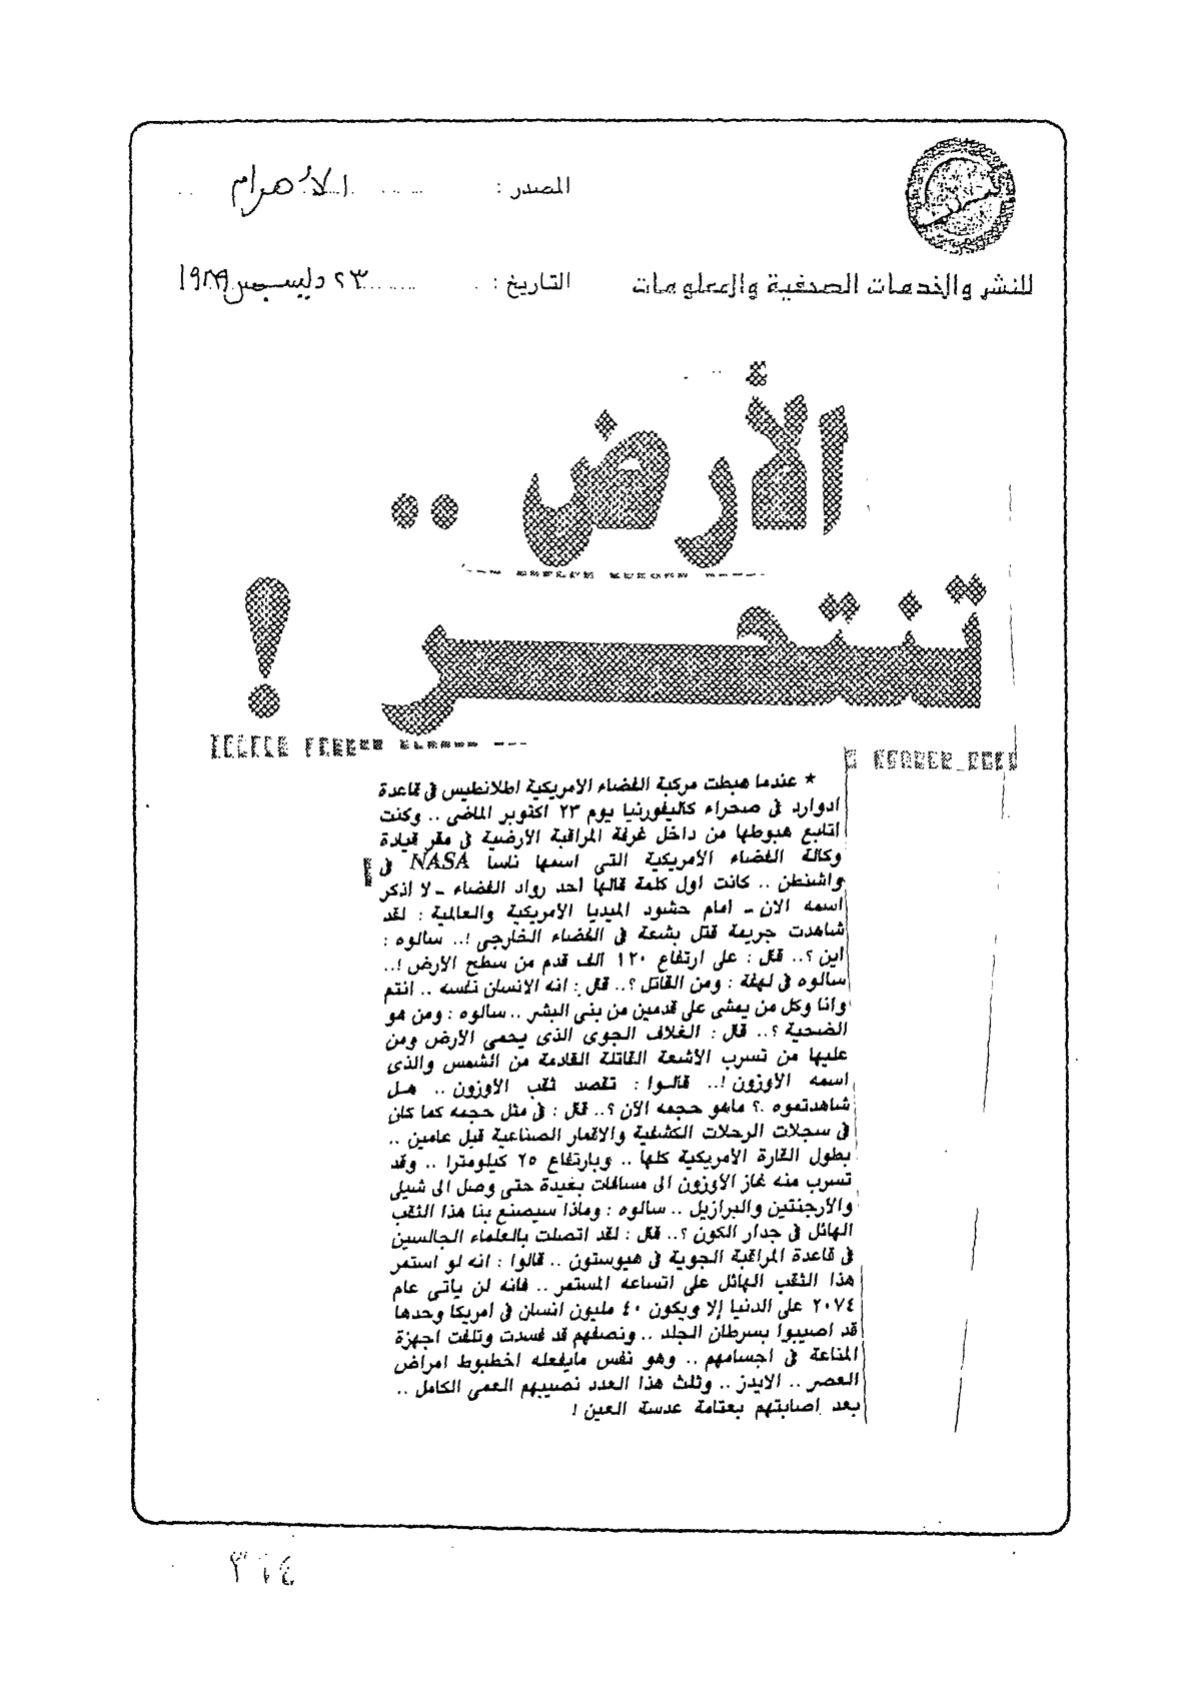 المصدر : الأهرام
للنشر والخدمات الصحفية والمعلومات
التاريخ : ٢٣ ديسمبر ١٩٨٩
الأرض ..
تنتحر !
* عندما هبطت مركبة الفضاء الامريكية اطلانطيس فى قاعدة
ادوارد فى صحراء كاليفورنيا يوم ٢٣ اكتوبر الماضى .. وكنت
اتابع هبوطها من داخل غرفة المراقبة الأرضية فى مقر قيادة
وكالة الفضاء الأمريكية التى اسمها ناسا NASA فى
واشنطن .. كانت اول كلمة قالها احد رواد الفضاء ـ لا اذكر
اسمه الان ـ امام حشود الميديا الأمريكية والعالمية : لقد
شاهدت جريمة قتل بشعة فى الفضاء الخارجى !.. سالوه :
اين ؟.. قال : على ارتفاع ١٢٠ الف قدم من سطح الأرض !..
سالوه فى لهفة : ومن القاتل ؟.. قال : انه الانسان نفسه .. انتم
وانا وكل من يمشى على قدمين من بنى البشر .. سالوه : ومن هو
الضحية ؟.. قال : الغلاف الجوى الذى يحمى الأرض ومن
عليها من تسرب الأشعة القاتلة القادمة من الشمس والذى
اسمه الاوزون !.. قالوا : تقصد ثقب الأوزون .. هل
شاهدتموه ؟ ماهو حجمه الآن ؟.. قال : فى مثل حجمه كما كان
فى سجلات الرحلات الكشفية والاقمار الصناعية قبل عامين ..
بطول القارة الأمريكية كلها .. وبارتفاع ٢٥ كيلومترا .. وقد
تسرب منه غاز الأوزون الى مسافات بعيدة حتى وصل الى شيلى
والأرجنتين والبرازيل .. سالوه : وماذا سيصنع بنا هذا الثقب
الهائل فى جدار الكون ؟.. قال : لقد اتصلت بالعلماء الجالسين
فى قاعدة المراقبة الجوية فى هيوستون .. قالوا : انه لو استمر
هذا الثقب الهائل على اتساعه المستمر .. فانه لن ياتى عام
٢٠٧٤ على الدنيا إلا ويكون ٤٠ مليون انسان فى امريكا وحدها
قد اصيبوا بسرطان الجلد .. ونصفهم قد فسدت وتلفت اجهزة
المناعة فى اجسامهم .. وهو نفس مايفعله اخطبوط امراض
العصر .. الايدز .. وثلث هذا العدد نصيبهم العمى الكامل ..
بعد اصابتهم بعتامة عدسة العين !
٣١٤